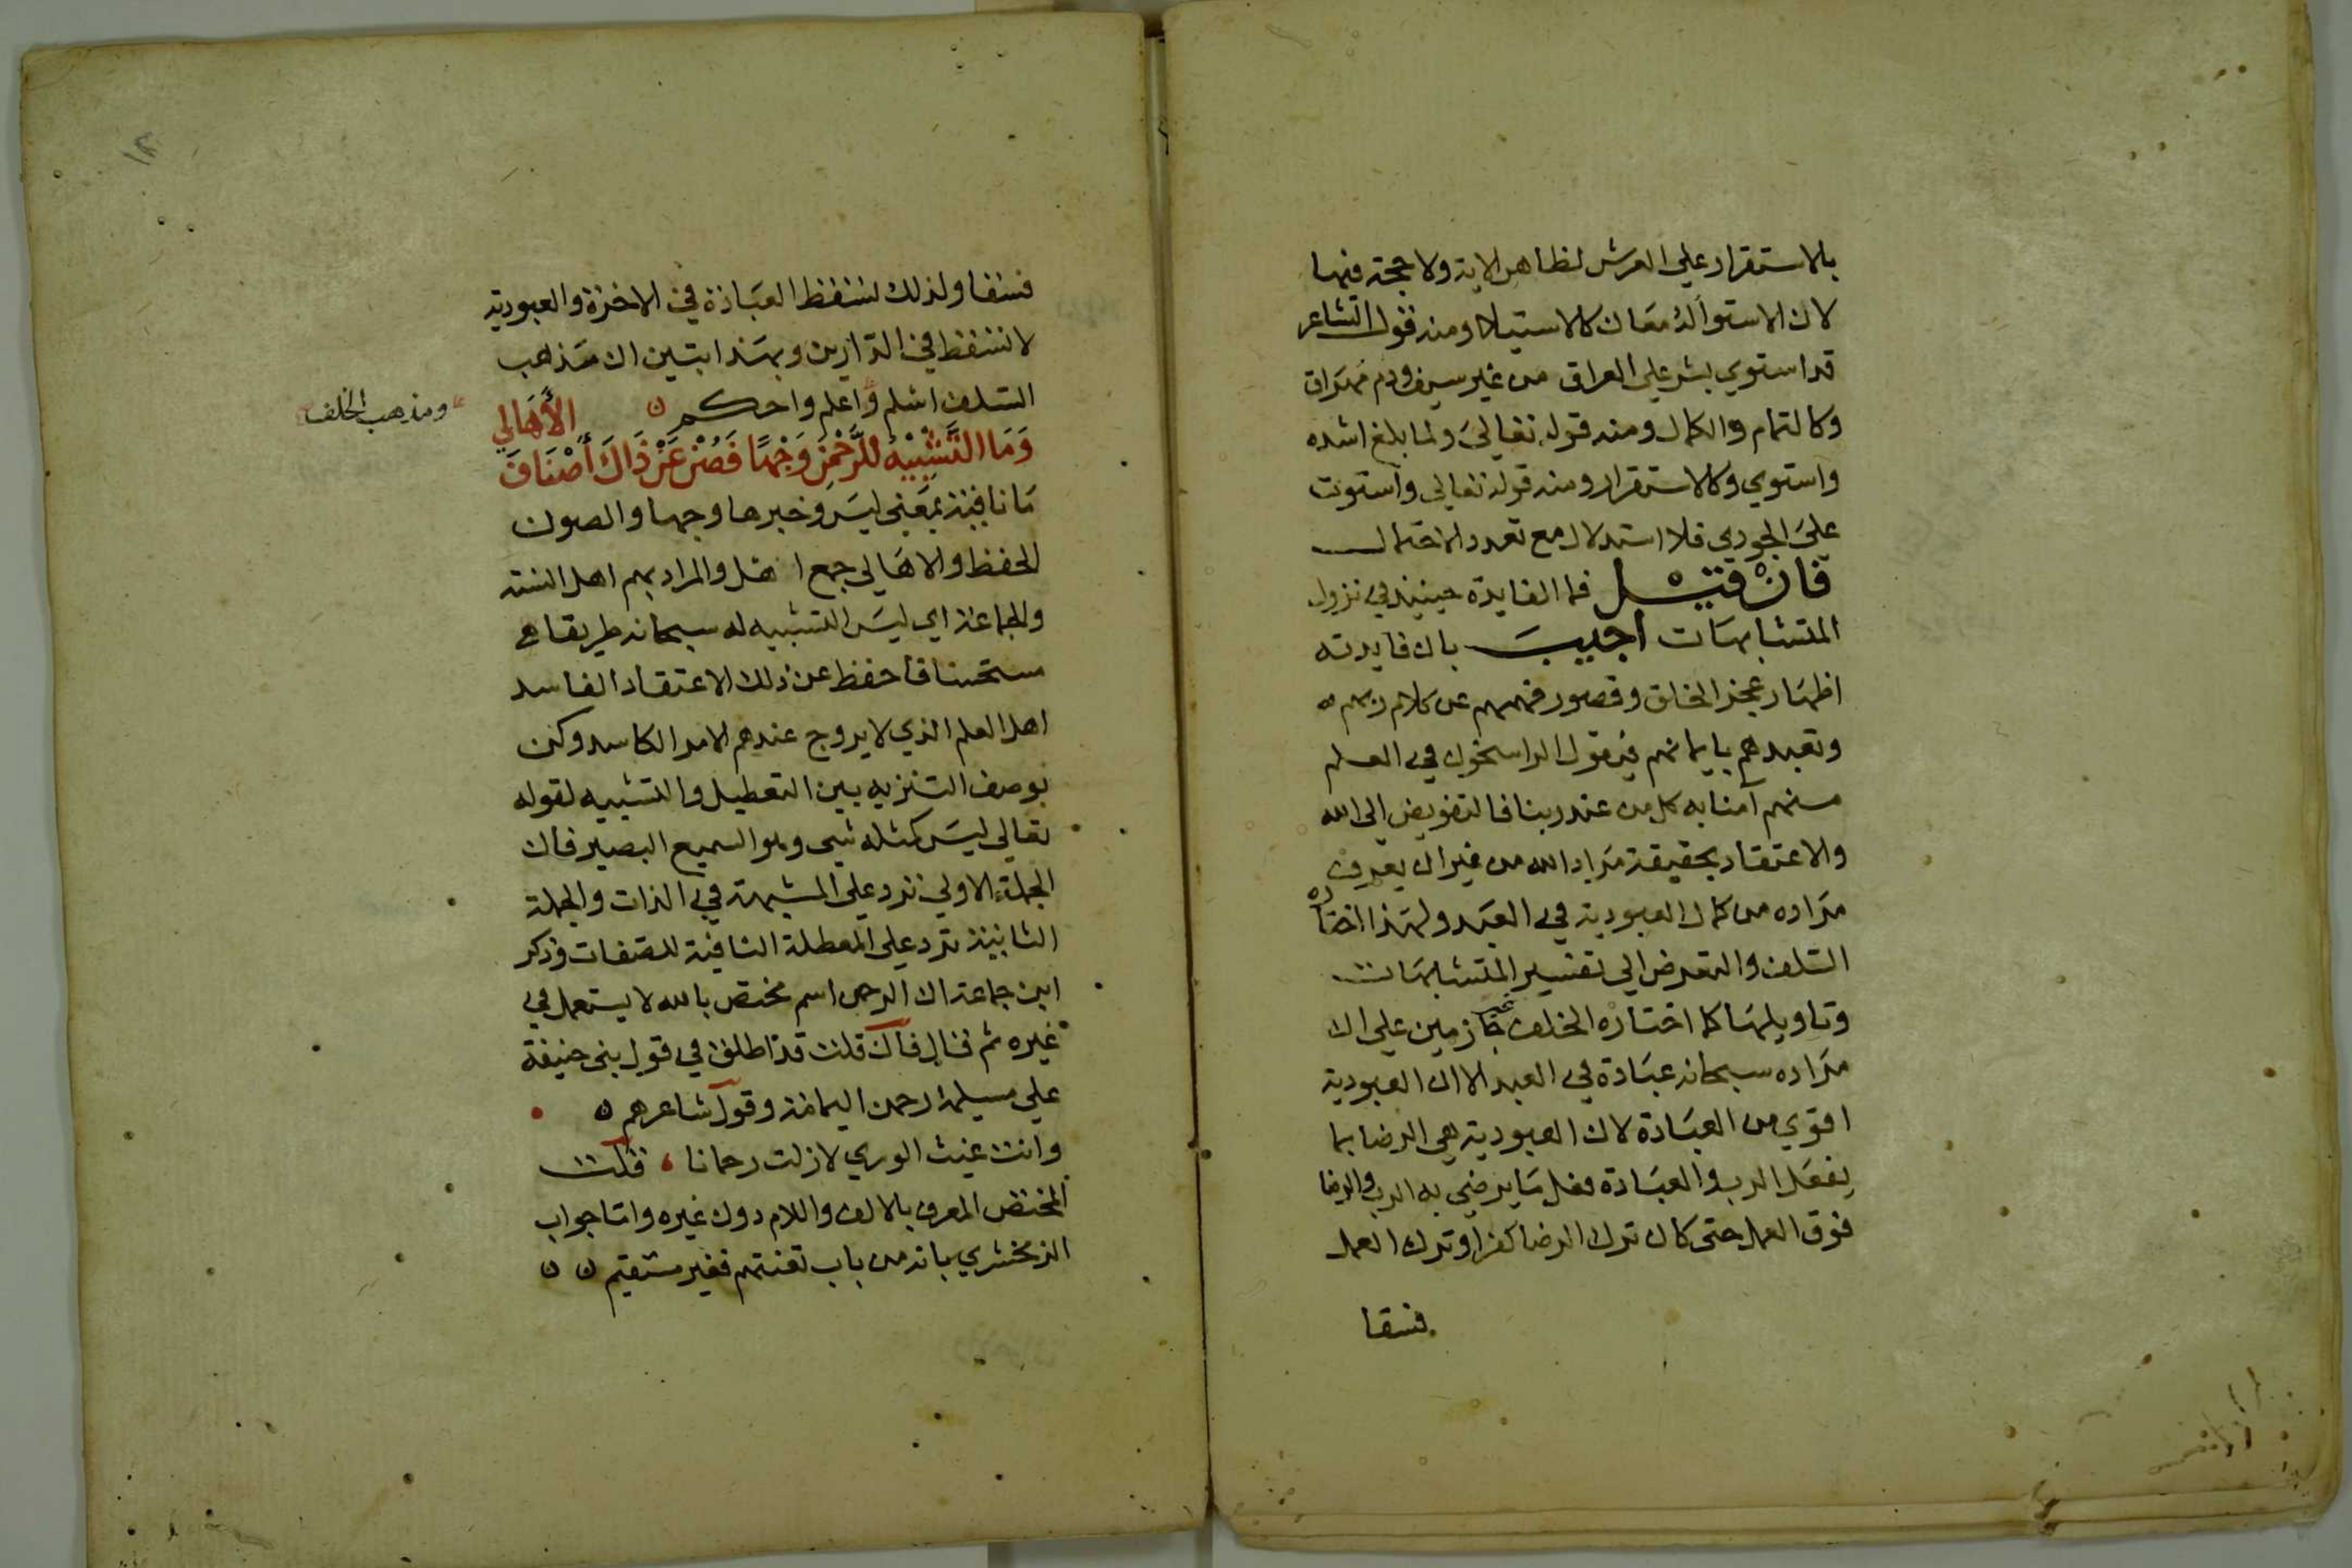 بالاستقرار علي العرش لظاهر الاية ولا حجة فيها
لان الاستوا له معان كالاستيلا ومنه قول الشاعر
قد استوي بشر علي العراق من غير سيف ودم مهراق
وكالتمام والكمال ومنه قوله تعالي ولما بلغ اشده
واستوي وكالاستقرار ومنه قوله تعالي واستوت
علي الجودي فلا استدلال مع تعدد الاحتمال
فان قيل فما الفايدة حينيذ في نزول
المتشابهات اجيب بان فايدته
اظهار عجز الخلق وقصور فهمهم عن كلام ربهم
وتعبدهم بايمانهم فيقول الراسخون في العلم
منهم آمنا به كل من عند ربنا فالتفويض الي الله
والاعتقاد بحقيقة مراد الله من غير ان يعرف
مراده من كمال العبودية في العبد ولهذا اختاره
السلف والتعرض الي تفسير المتشابهات
وتاويلها كما اختاره الخلف غير جازمين علي ان
مراده سبحانه عبادة في العبد الا ان العبودية
اقوي من العبادة لان العبودية هي الرضا بما
يفعل الرب والعبادة فعل ما يرضي به الرب والرضا
فوق العمل حتي كان ترك الرضا كفرا وترك العمل
فسقا
١٢
فسقا ولذلك تسقط العبادة في الاخرة والعبودية
لا تسقط في الدارين وبهذا ابتين ان مذهب
السلف اسلم واعلم واحكم
ومذهب الخلف
الأهالي
وَمَا التَّشْبِيْهُ لِلرَّحْمٰنِ وَجْهًا فَصُنْ عَنْ ذَاكَ أَصْنَافَ
ما نافية بمعني ليس وخبرها وجها والصون
الحفظ والاهالي جمع اهل والمراد بهم اهل السنة
والجماعة اي ليس التشبيه له سبحانه طريقا
مستحسنا فاحفظ عن ذلك الاعتقاد الفاسد
اهل العلم الذي لا يروج عندهم الامر الكاسد وكن
بوصف التنزيه بين التعطيل والتشبيه لقوله
تعالي ليس كمثله شي وهو السميع البصير فان
الجملة الاولي ترد علي المشبهة في الذات والجملة
الثانية ترد علي المعطلة النافية للصفات وذكر
ابن جماعة ان الرحمن اسم مختص بالله لا يستعمل في
غيره ثم قال فان قلت قد اطلق في قول بني حنيفة
علي مسيلمة رحمن اليمامة وقول شاعرهم
وانت غيث الوري لا زلت رحمانا، قلت
المختص المعرف بالالف واللام دون غيره واما جواب
الزمخشري بانه من باب تعنتهم فغير مستقيم